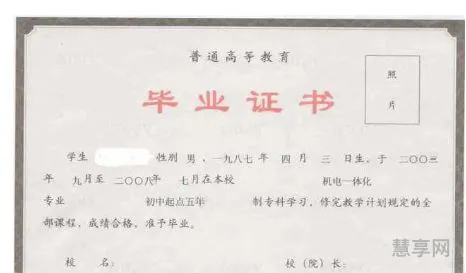 普通高等教育
照
片
毕业证书
学生 性别 男 、一九八七 年 四 月 三 日生，于 二〇〇三
年 九月至 二〇〇八年 七月在本校 机电一体化
专业 初中起点五年 制专科学习，修完教学计划规定的全
部课程，成绩合格，准予毕业。
校 名： 校（院）长：
慧享网